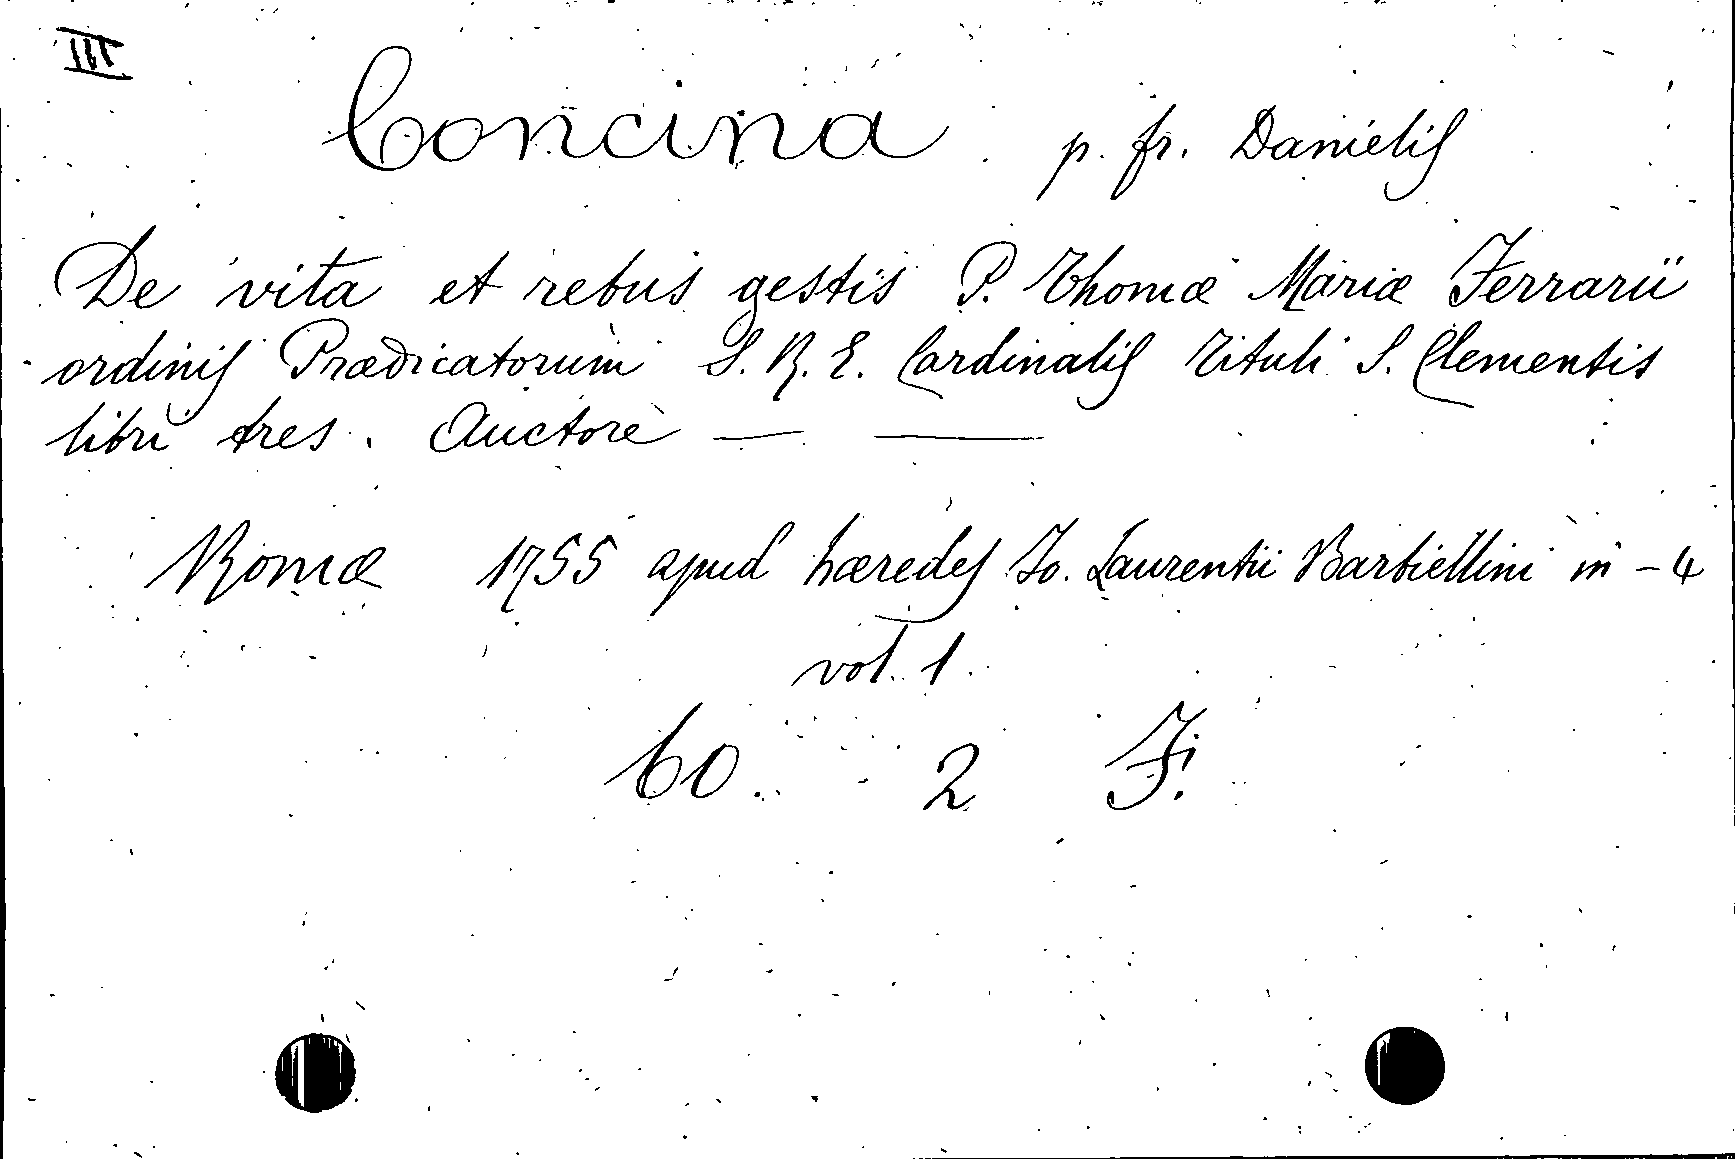 III
Concina p. fr. Danielis
De vita et rebus gestis P. Thomæ Mariæ Ferrarii
ordinis Prædicatorum S. R. E. Cardinalis Tituli S. Clementis
libri tres. Auctore — —
Romæ 1755 apud hæredes Jo. Laurentii Barbiellini in - 4
vol. 1.
60. 2 F.